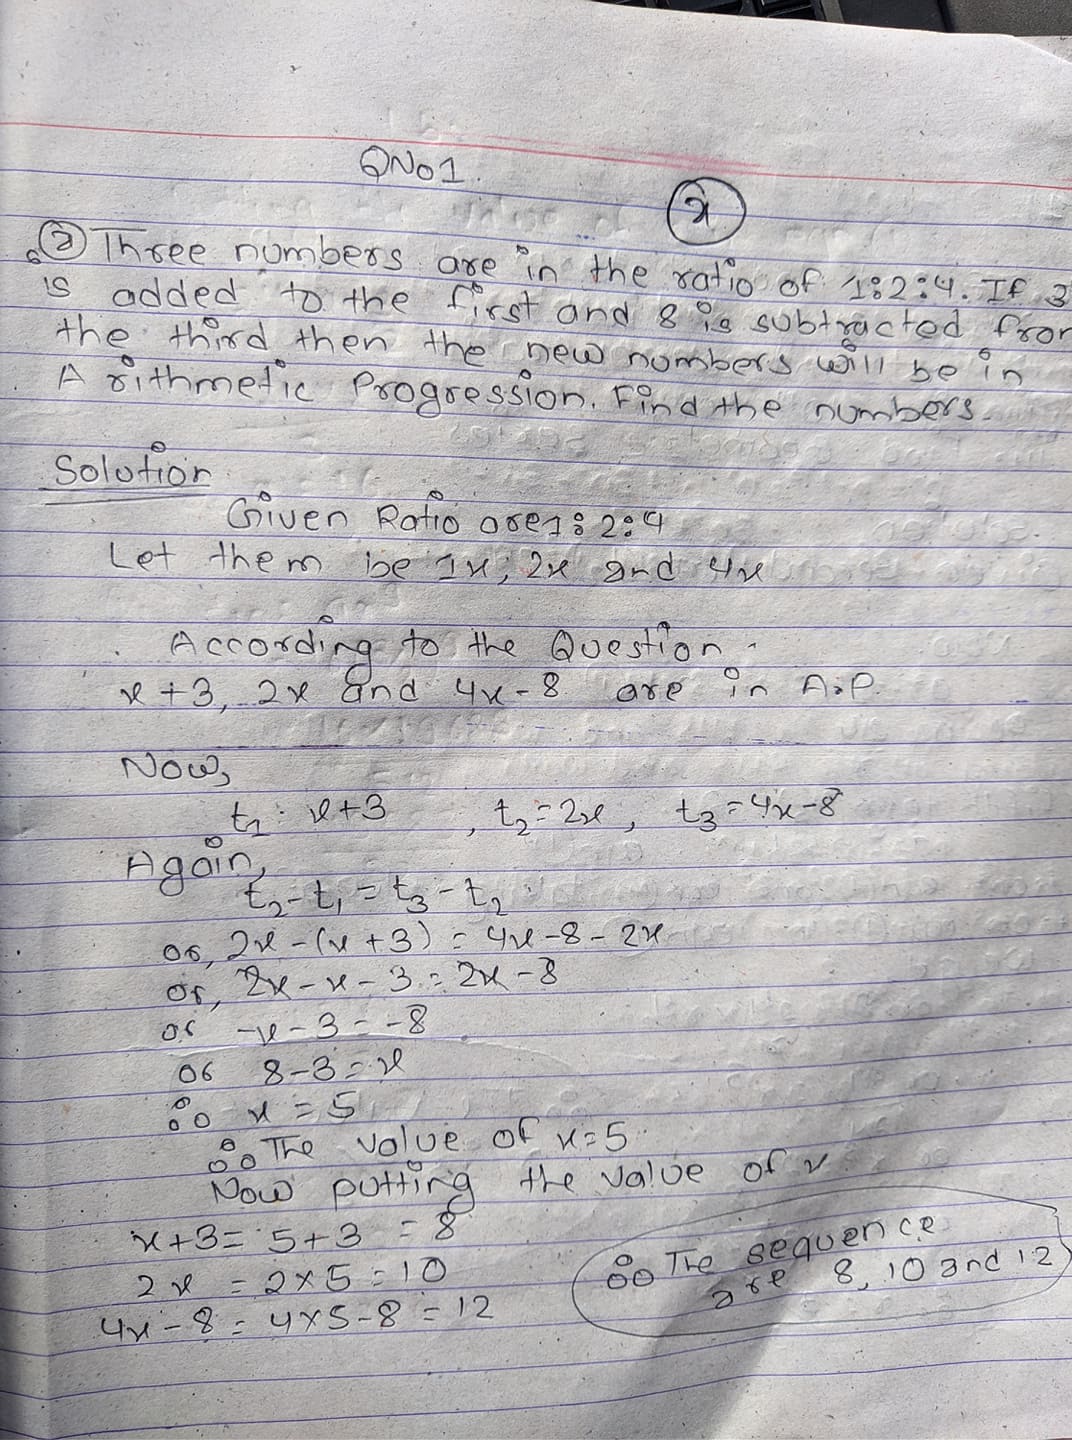 QNo1.
x
② Three numbers are in the ratio of 1:2:4. If 3
is added to the first and 8 is subtracted from
the third then the new numbers will be in
Arithmetic Progression. Find the numbers.
Solution
Given Ratio are 1:2:4
Let them be 1x, 2x and 4x
According to the Question -
x+3, 2x and 4x-8 are in A.P.
Now,
t1 : x+3 , t2 = 2x , t3 = 4x-8
Again,
t2-t1 = t3-t2
or, 2x-(x+3) = 4x-8-2x
or, 2x-x-3 = 2x-8
or -x-3 = -8
or 8-3 = x
∴ x = 5
∴ The value of x=5.
Now putting the value of x
x+3 = 5+3 = 8
2x = 2×5 = 10
4x-8 = 4×5-8 = 12
∴ The sequence
are 8, 10 and 12